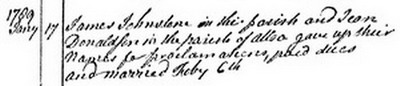 1789
Janry 17 James Johnstone in this parish and Jean
Donaldson in the parish of alloa gave up their
Names for proclamations, paid dues
and married Feby 6th